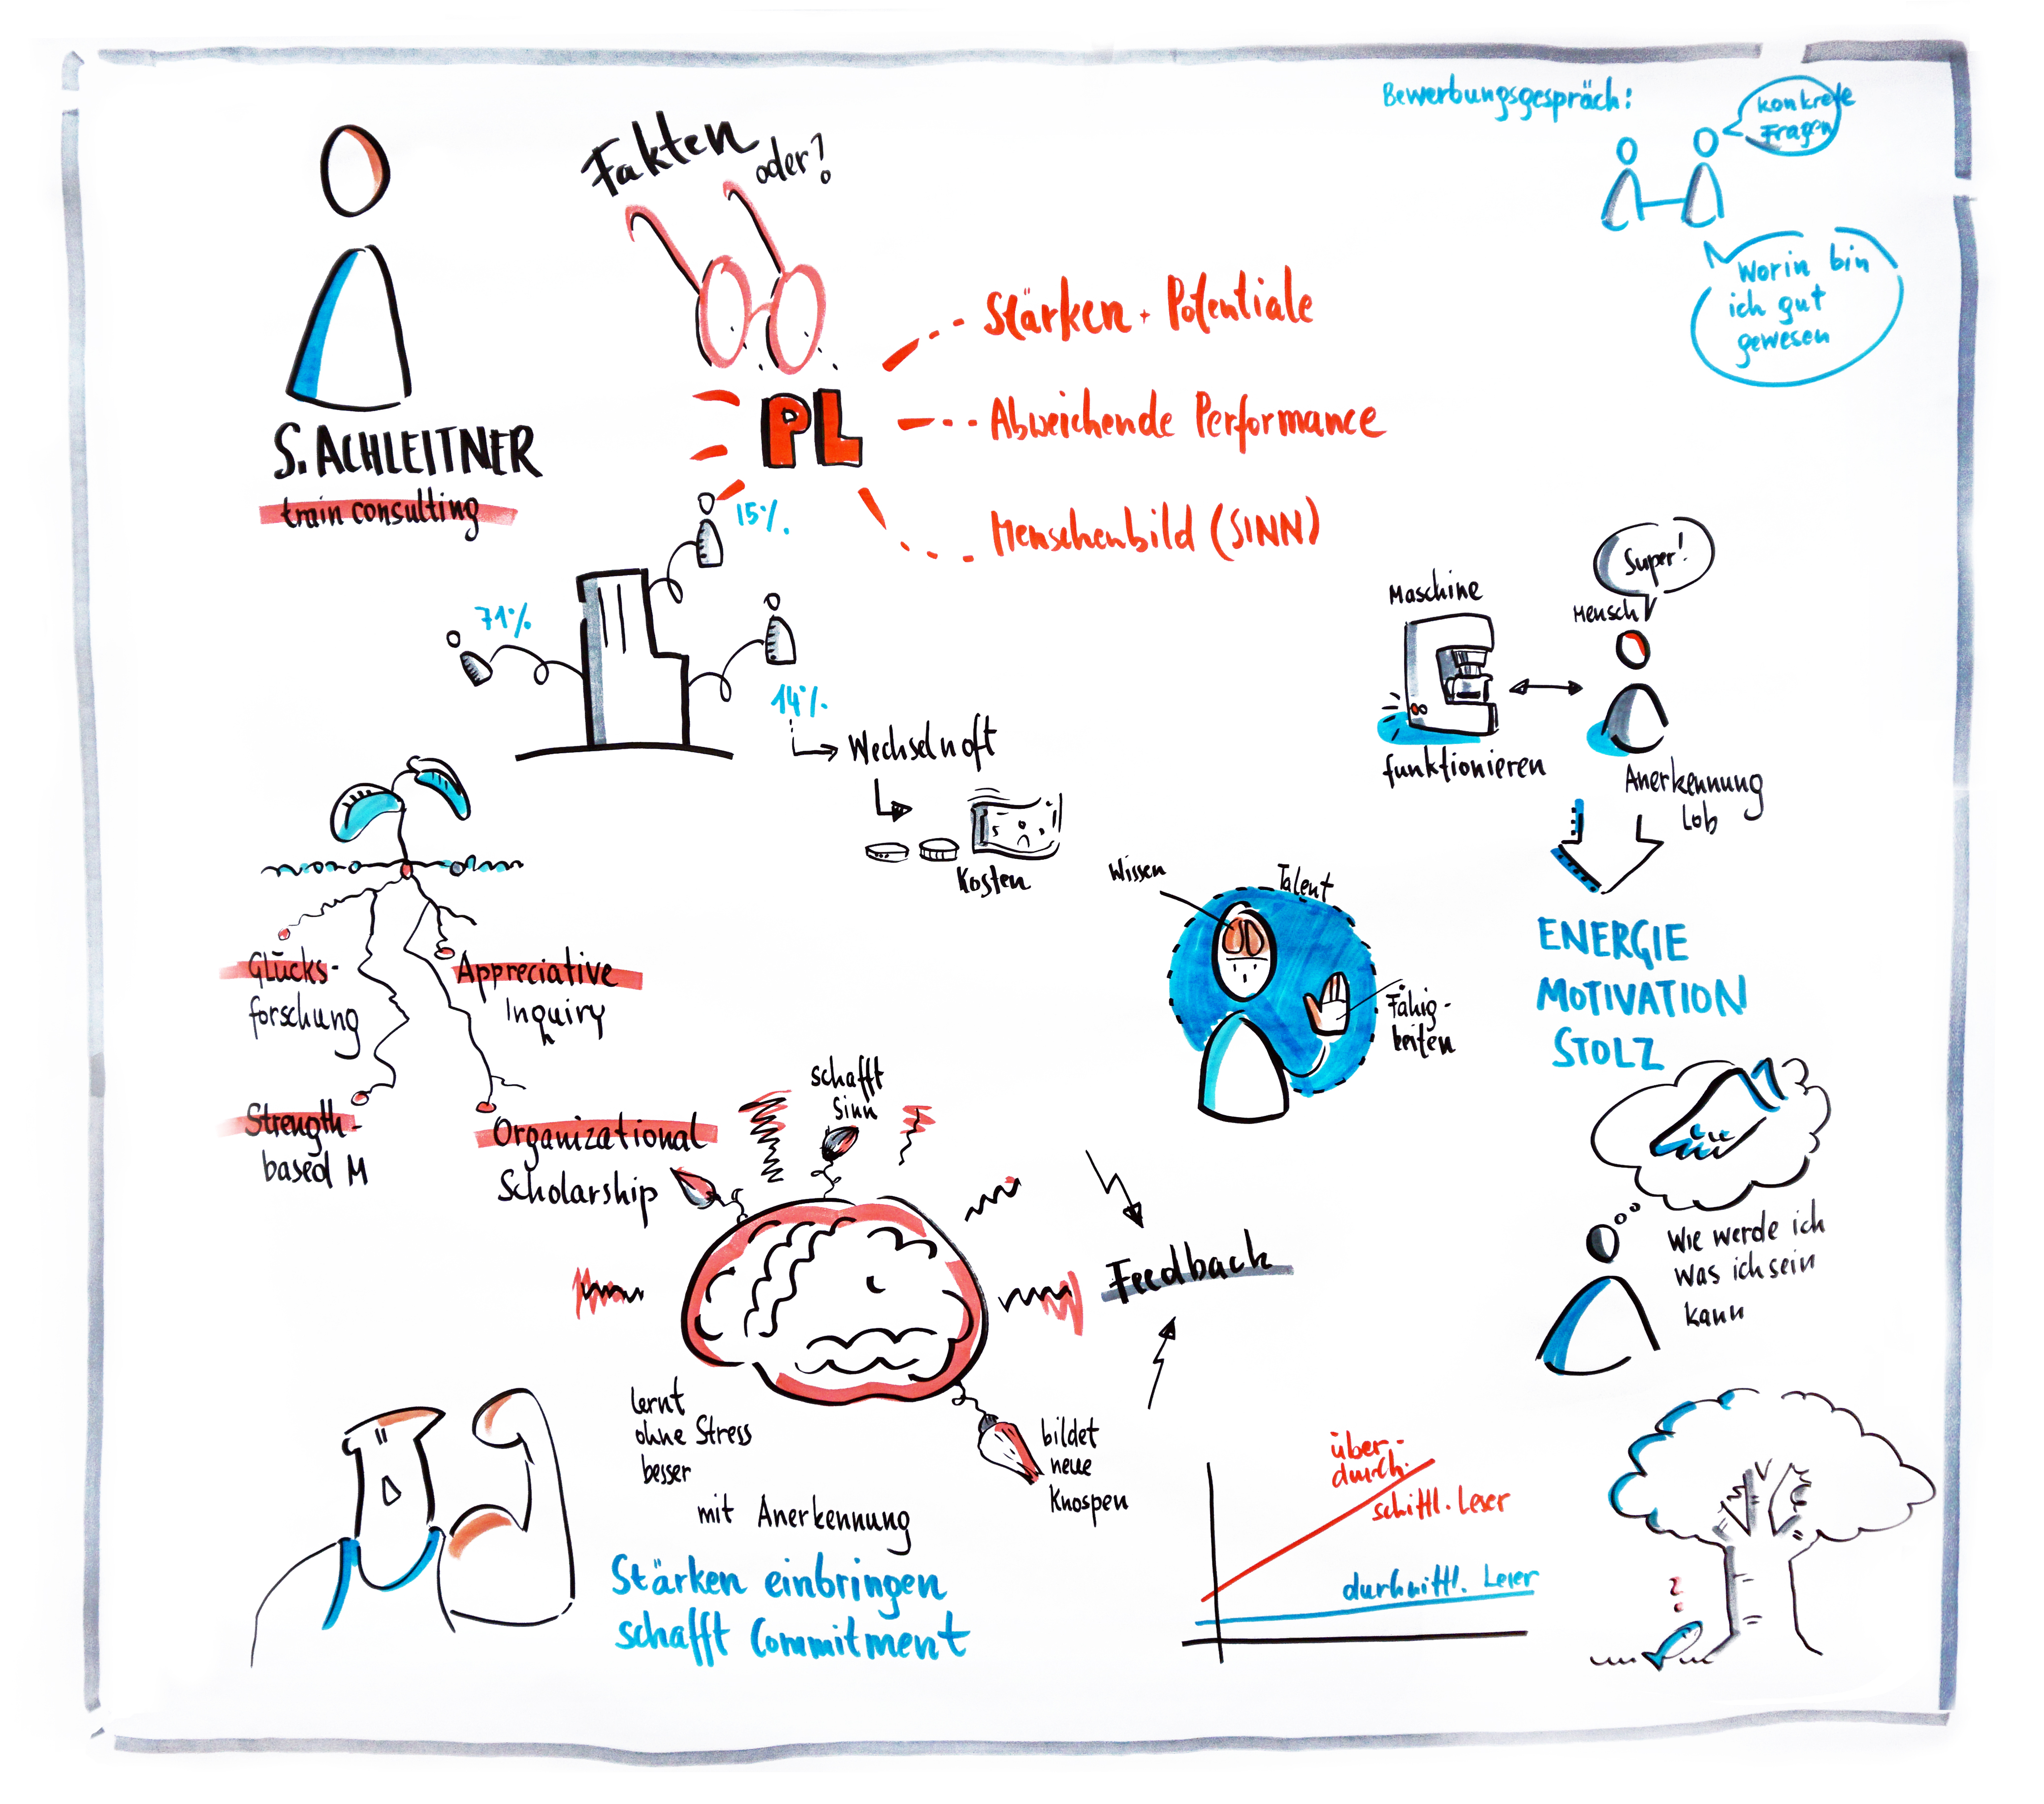 Bewerbungsgespräch:
konkrete
Fragen
worin bin
ich gut
gewesen
Fakten
oder?
S. ACHLEITNER
train consulting
PL
Stärken + Potentiale
Abweichende Performance
Menschenbild (SINN)
15%
71%
14%
Wechseln oft
Kosten
Super!
Maschine
Mensch
funktionieren
Anerkennung
Lob
ENERGIE
MOTIVATION
STOLZ
Wissen
Talent
Fähig-
keiten
Glücks-
forschung
Appreciative
Inquiry
Strength-
based M
Organizational
Scholarship
schafft
Sinn
Feedback
Wie werde ich
was ich sein
kann
lernt
ohne Stress
besser
mit Anerkennung
bildet
neue
Knospen
Stärken einbringen
schafft Commitment
über-
durch.
schittl. Leser
durhnittl. Leser
?